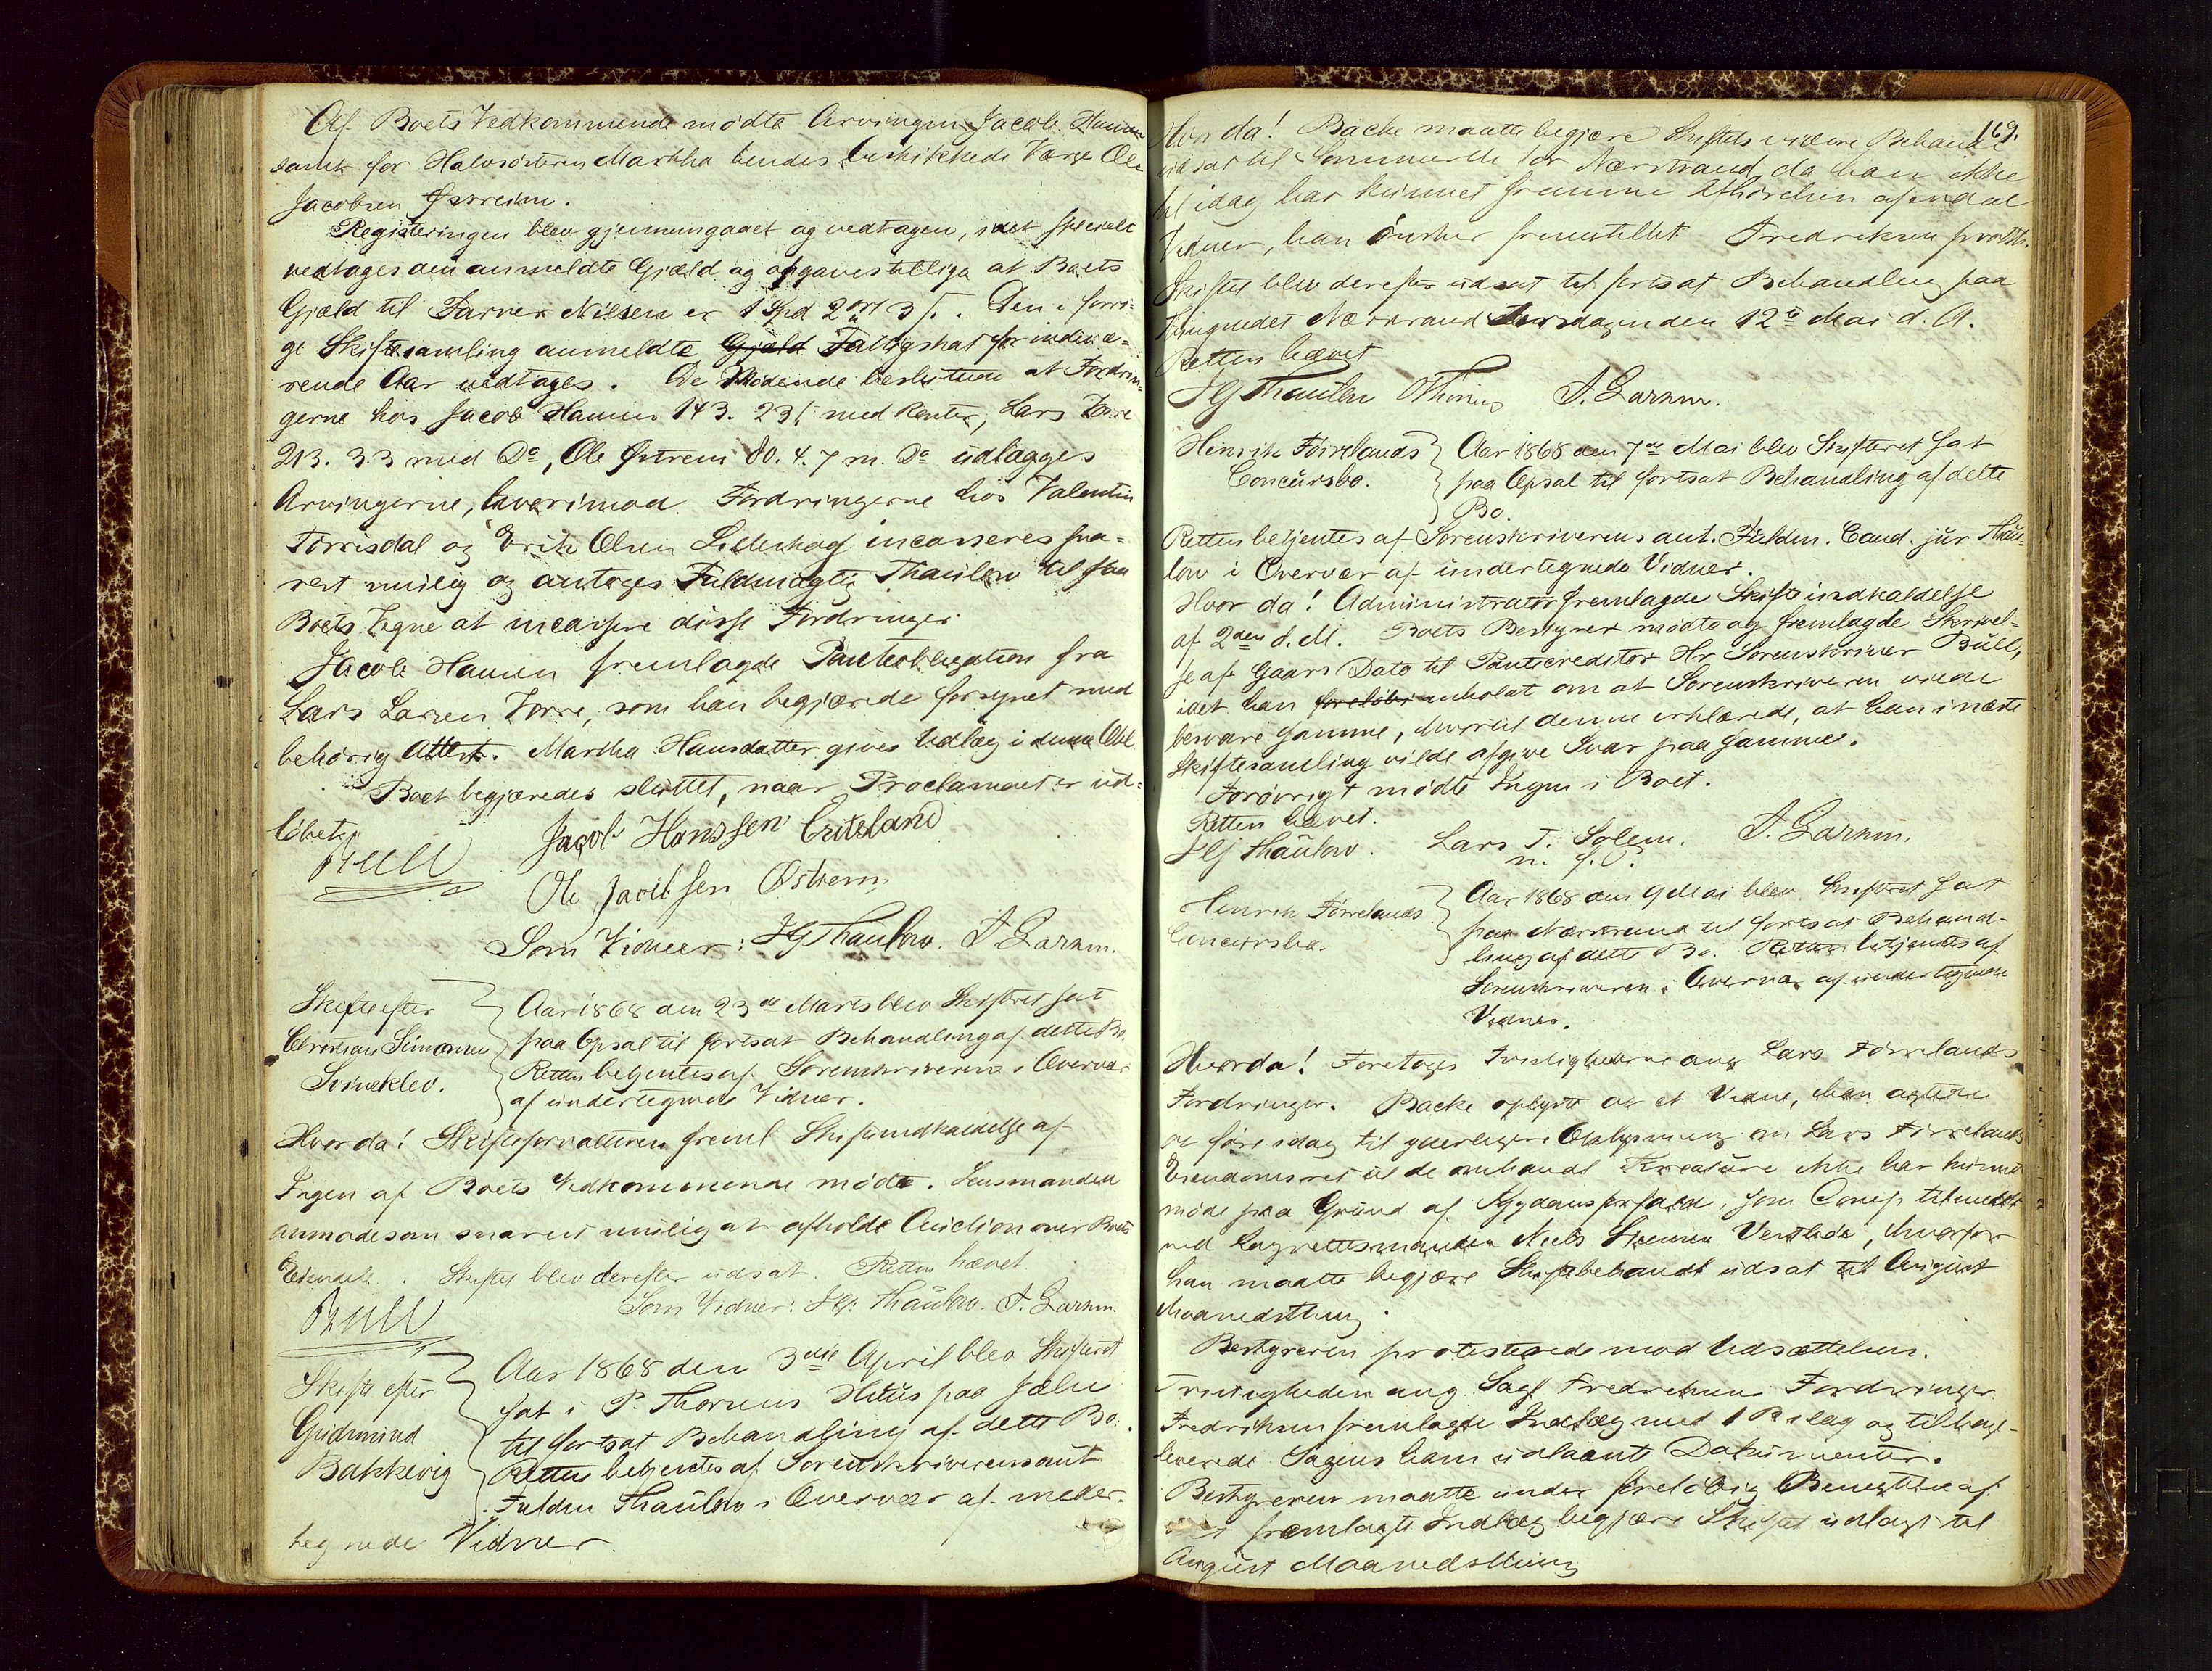 Af Boets Vedkommende mødte Arvingen Jacob Hansen
samt for Halvsøsteren Martha hendes beskikkede Værge Ole
Jacobsen Østreim.
Registeringen blev gjennemgaaet og vedtagen, idet specielt
vedtages den anmeldte Gjæld og opgaves tillige at Boets
Gjæld til Farver Nilsen er 1 Spd 2 ort 3 s. Den i forri-
ge Skiftesamling anmeldte Gjæld Fattigskat for indevæ-
rende Aar vedtages. De Mødende besluttede at Fordrin-
gerne hos Jacob Hansen 143. 23 s med Renter, Lars Torre
213. 3.3 med Do, Ole Østrem 80. 4. 7 m. Do udlægges
Arvingerne, hvorimod Fordringerne hos Valentin
Tørrisdal og Erik Olsen Lilleskog incasseres sna-
rest mulig og antoges Fuldmægtig Thaulow til paa
Boets Vegne at incassere disse Fordringer.
Jacob Hansen fremlagde Panteobligation fra
Lars Larsen Torre, som han begjærede forsynet med
behørig Attest. Martha Hansdatter gives Udlæg i denne Obl.
Boet begjæredes sluttet, naar Proclamaet er ud-
løbet.
Bull
Jacob Hanssen Eritsland
Ole Jacobsen Østrem
Som Vidner: HG Thaulow. A. Larsen.
Skifte efter
Christian Simonsen
Svineklev.
Aar 1868 den 23de Marts blev Skifteret sat
paa Opsal til fortsat Behandling af dette Bo.
Retten betjentes af Sorenskriveren i Overvær
af undertegnede Vidner.
Hvorda! Skifteforvalteren freml Skifteindkaldelse af
Ingen af Boets Vedkommende mødte. Lensmanden
anmodes om snarest mulig at afholde Auction over Boets
Eiendele. Skiftet blev derefter udsat. Retten hævet.
Bull
Som Vidner: HG. Thaulow. A. Larsen.
Skifte efter
Gudmund
Bakkevig
Aar 1868 den 3die April blev Skifteret
sat i P. Thorsens Huus paa Jælse
til fortsat Behandling af dette Bo.
Retten betjentes af Sorenskriverens aut.
Fuldm Thaulow i Overvær af under-
tegnede Vidner.
169.
Hvor da! Backe maatte begjære Skiftets videre Behandl
udsat til Sommerth for Nærstrand, da han ikke
til idag har kunnet fremme Afhørelsen af endel
Vidner, han ønsker fremstillet. Fredriksen protst.
Skiftet blev derefter udsat til fortsat Behandling paa
Thingstedet Nærstrand Tirsdagen den 12te Mai d. A.
Retten hævet
HG Thaulow A. Larsen.
Henrik Førrelands
Concursbo.
Aar 1868 den 7de Mai blev Skifteret sat
paa Opsal til fortsat Behandling af dette
Bo.
Retten betjentes af Sorenskriverens aut. Fuldm. Cand. jur Thau-
low i Overvær af undertegnede Vidner.
Hvor da! Administrator fremlagde Skifteindkaldelse
af 2den d. M. Boets Bestyrer mødte og fremlagde Skrivel-
se af Gaars Dato til Panticreditor Hr Sorenskriver Bull,
idet han foreløbi anholdt om at Sorenskriveren vilde
besvare samme, hvortil denne erklærede, at han i næste
Skiftesamling vilde afgive Svar paa samme.
Forøvrigt mødte Ingen i Boet.
Retten hævet.
HG Thaulow. Lars T. Solem. A. Larsen.
m. f. P.
Henrik Førrelands
Concursbo.
Aar 1868 den 9 Mai blev Skifteret sat
paa Nærstrand til fortsat Behand-
ling af dette Bo. Retten betjentes af
Sorenskriveren i Overvær af undertegnede
Vidner.
Hvorda! Foretoges Tvistighederne ang Lars Førrelands
Fordringer. Backe oplyste at et Vidne, han agtede
at føre idag til yderligere Oplysning om Lars Førrelands
Eiendomsret til de omhandl Kreature ikke har kunnet
møde paa Grund af Sygdomsforfald, som Comp tilmeldt
ved Lagrettesmanden Niels Steensen Vestbøe, hvorfor
han maatte begjære Skiftebehandl udsat til August
Maanedsthing.
Bestyreren protesterede mod Udsættelsen.
Tvistigheden ang. Sagf Fredriksens Fordringer.
Fredriksen fremlagde Indlæg med 1 Bilag og tilbage-
leverede Sagens ham udlaante Dokumenter.
Bestyreren maatte under foreløbig Benegtelse af
fremlagte Indlæg begjære Skiftet udsat til
August Maanedsthing